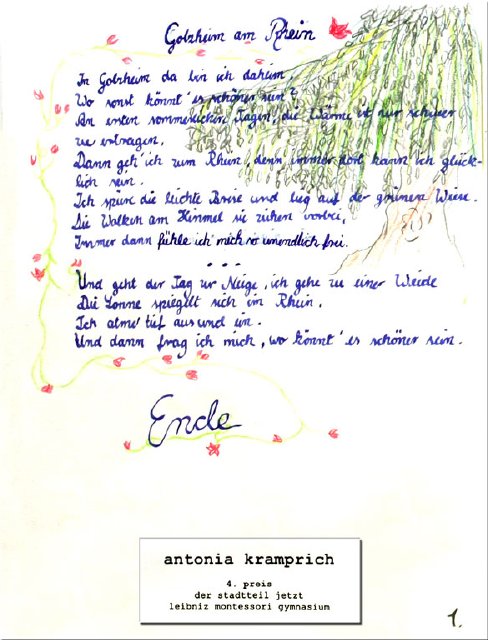 Golzheim am Rhein
In Golzheim da bin ich daheim
Wo sonst könnt' es schöner sein?
An ersten sommerlichen Tagen, die Wärme ist nur schwer
zu ertragen.
Dann geh' ich zum Rhein, denn immer dort kann ich glück-
lich sein.
Ich spür die leichte Brise und lieg auf der grünen Wiese.
Die Wolken am Himmel sie ziehen vorbei,
Immer dann fühle ich mich so unendlich frei.
...
Und geht der Tag zur Neige, ich gehe zu einer Weide
Die Sonne spiegelt sich im Rhein.
Ich atme tief aus und ein.
Und dann frag ich mich, wo könnt' es schöner sein.
Ende
antonia kramprich
4. preis
der stadtteil jetzt
leibniz montessori gymnasium
1.